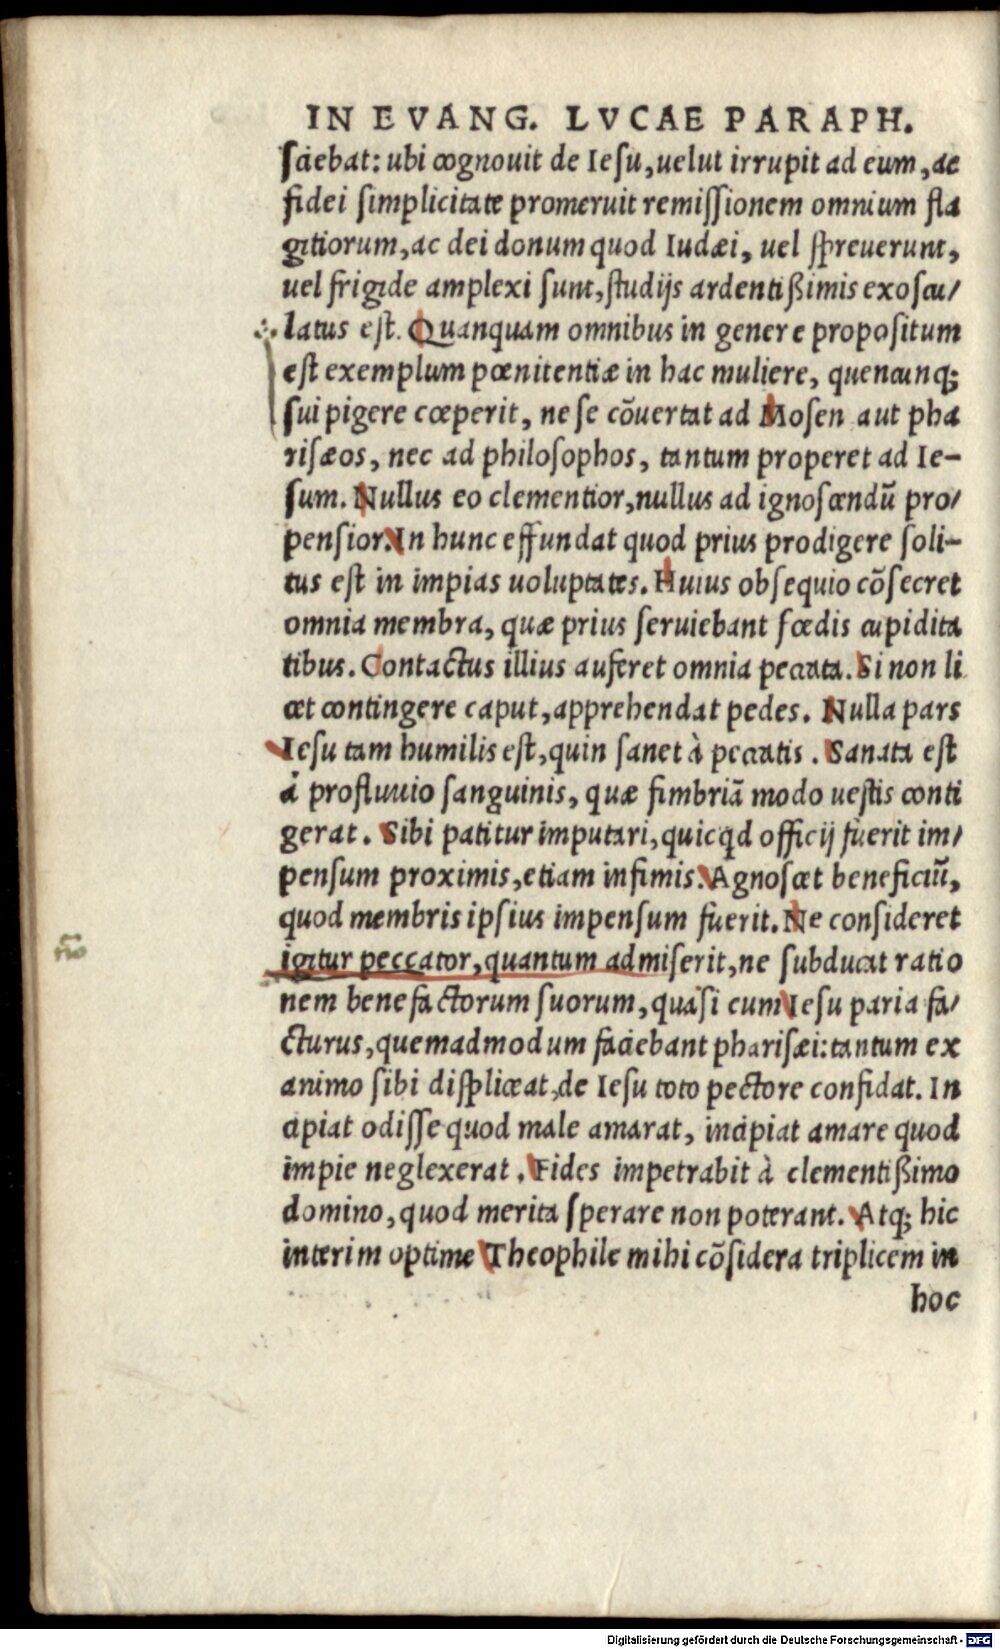 IN EVANG. LVCAE PARAPH.
sciebat: ubi cognouit de Iesu, uelut irrupit ad eum, ac
fidei simplicitate promeruit remissionem omnium fla
gitiorum, ac dei donum quod Iudæi, uel spreuerunt,
uel frigide amplexi sunt, studijs ardentißimis exoscu/
latus est. Quanquam omnibus in genere propositum
est exemplum pœnitentiæ in hac muliere, quencunq;
sui pigere cœperit, ne se cõuertat ad Mosen aut pha
risæos, nec ad philosophos, tantum properet ad Ie-
sum. Nullus eo clementior, nullus ad ignoscendũ pro/
pensior. In hunc effundat quod prius prodigere soli-
tus est in impias uoluptates. Huius obsequio cõsecret
omnia membra, quæ prius seruiebant fœdis cupidita
tibus. Contactus illius auferet omnia peccata. Si non li
cet contingere caput, apprehendat pedes. Nulla pars
Iesu tam humilis est, quin sanet à peccatis. Sanata est
à profluuio sanguinis, quæ fimbriã modo uestis conti
gerat. Sibi patitur imputari, quicqd officij fuerit im/
pensum proximis, etiam infimis. Agnoscet beneficiũ,
quod membris ipsius impensum fuerit. Ne consideret
igitur peccator, quantum admiserit, ne subducat ratio
nem benefactorum suorum, quasi cum Iesu paria fa/
cturus, quemadmodum faciebant pharisæi: tantum ex
animo sibi displiceat, de Iesu toto pectore confidat. In
cipiat odisse quod male amarat, incipiat amare quod
impie neglexerat. Fides impetrabit à clementißimo
domino, quod merita sperare non poterant. Atq; hic
interim optime Theophile mihi cõsidera triplicem in
hoc
Digitalisierung gefördert durch die Deutsche Forschungsgemeinschaft - DFG